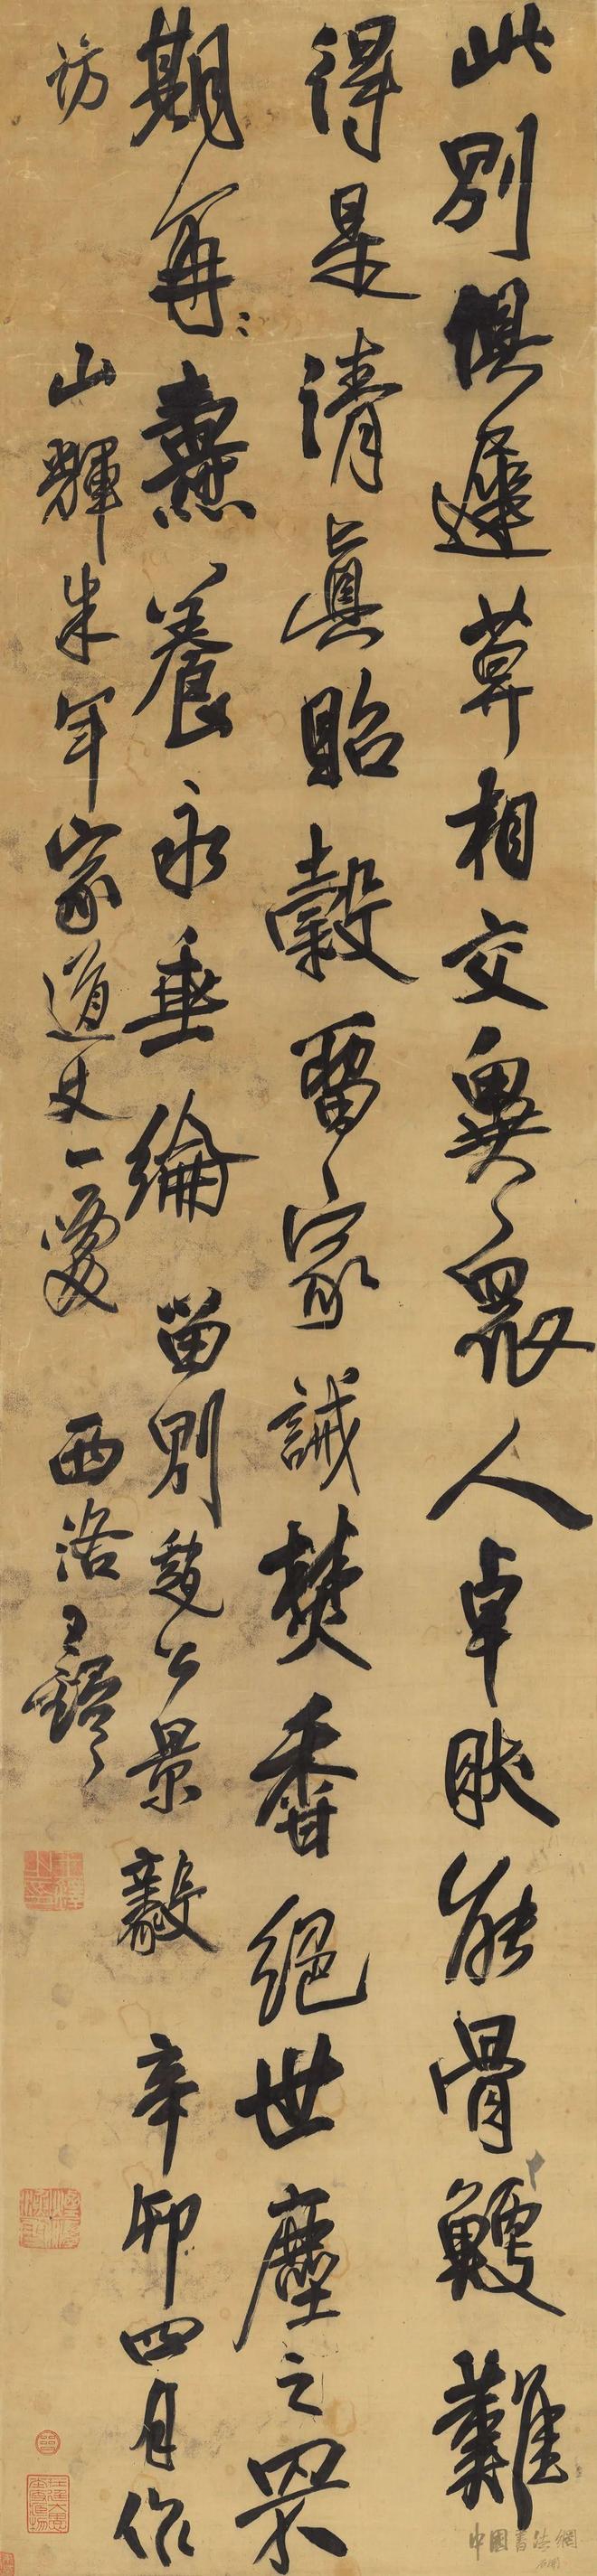 此別俱遲莫相交異眾人卓然能骨鯁難
得是清真貽穀留家誡焚香絕世塵之罘
期再再養永垂綸留別趙公景毅辛卯四月作
訪山輝朱年家道丈一愛西洛王鐸
中國書法網